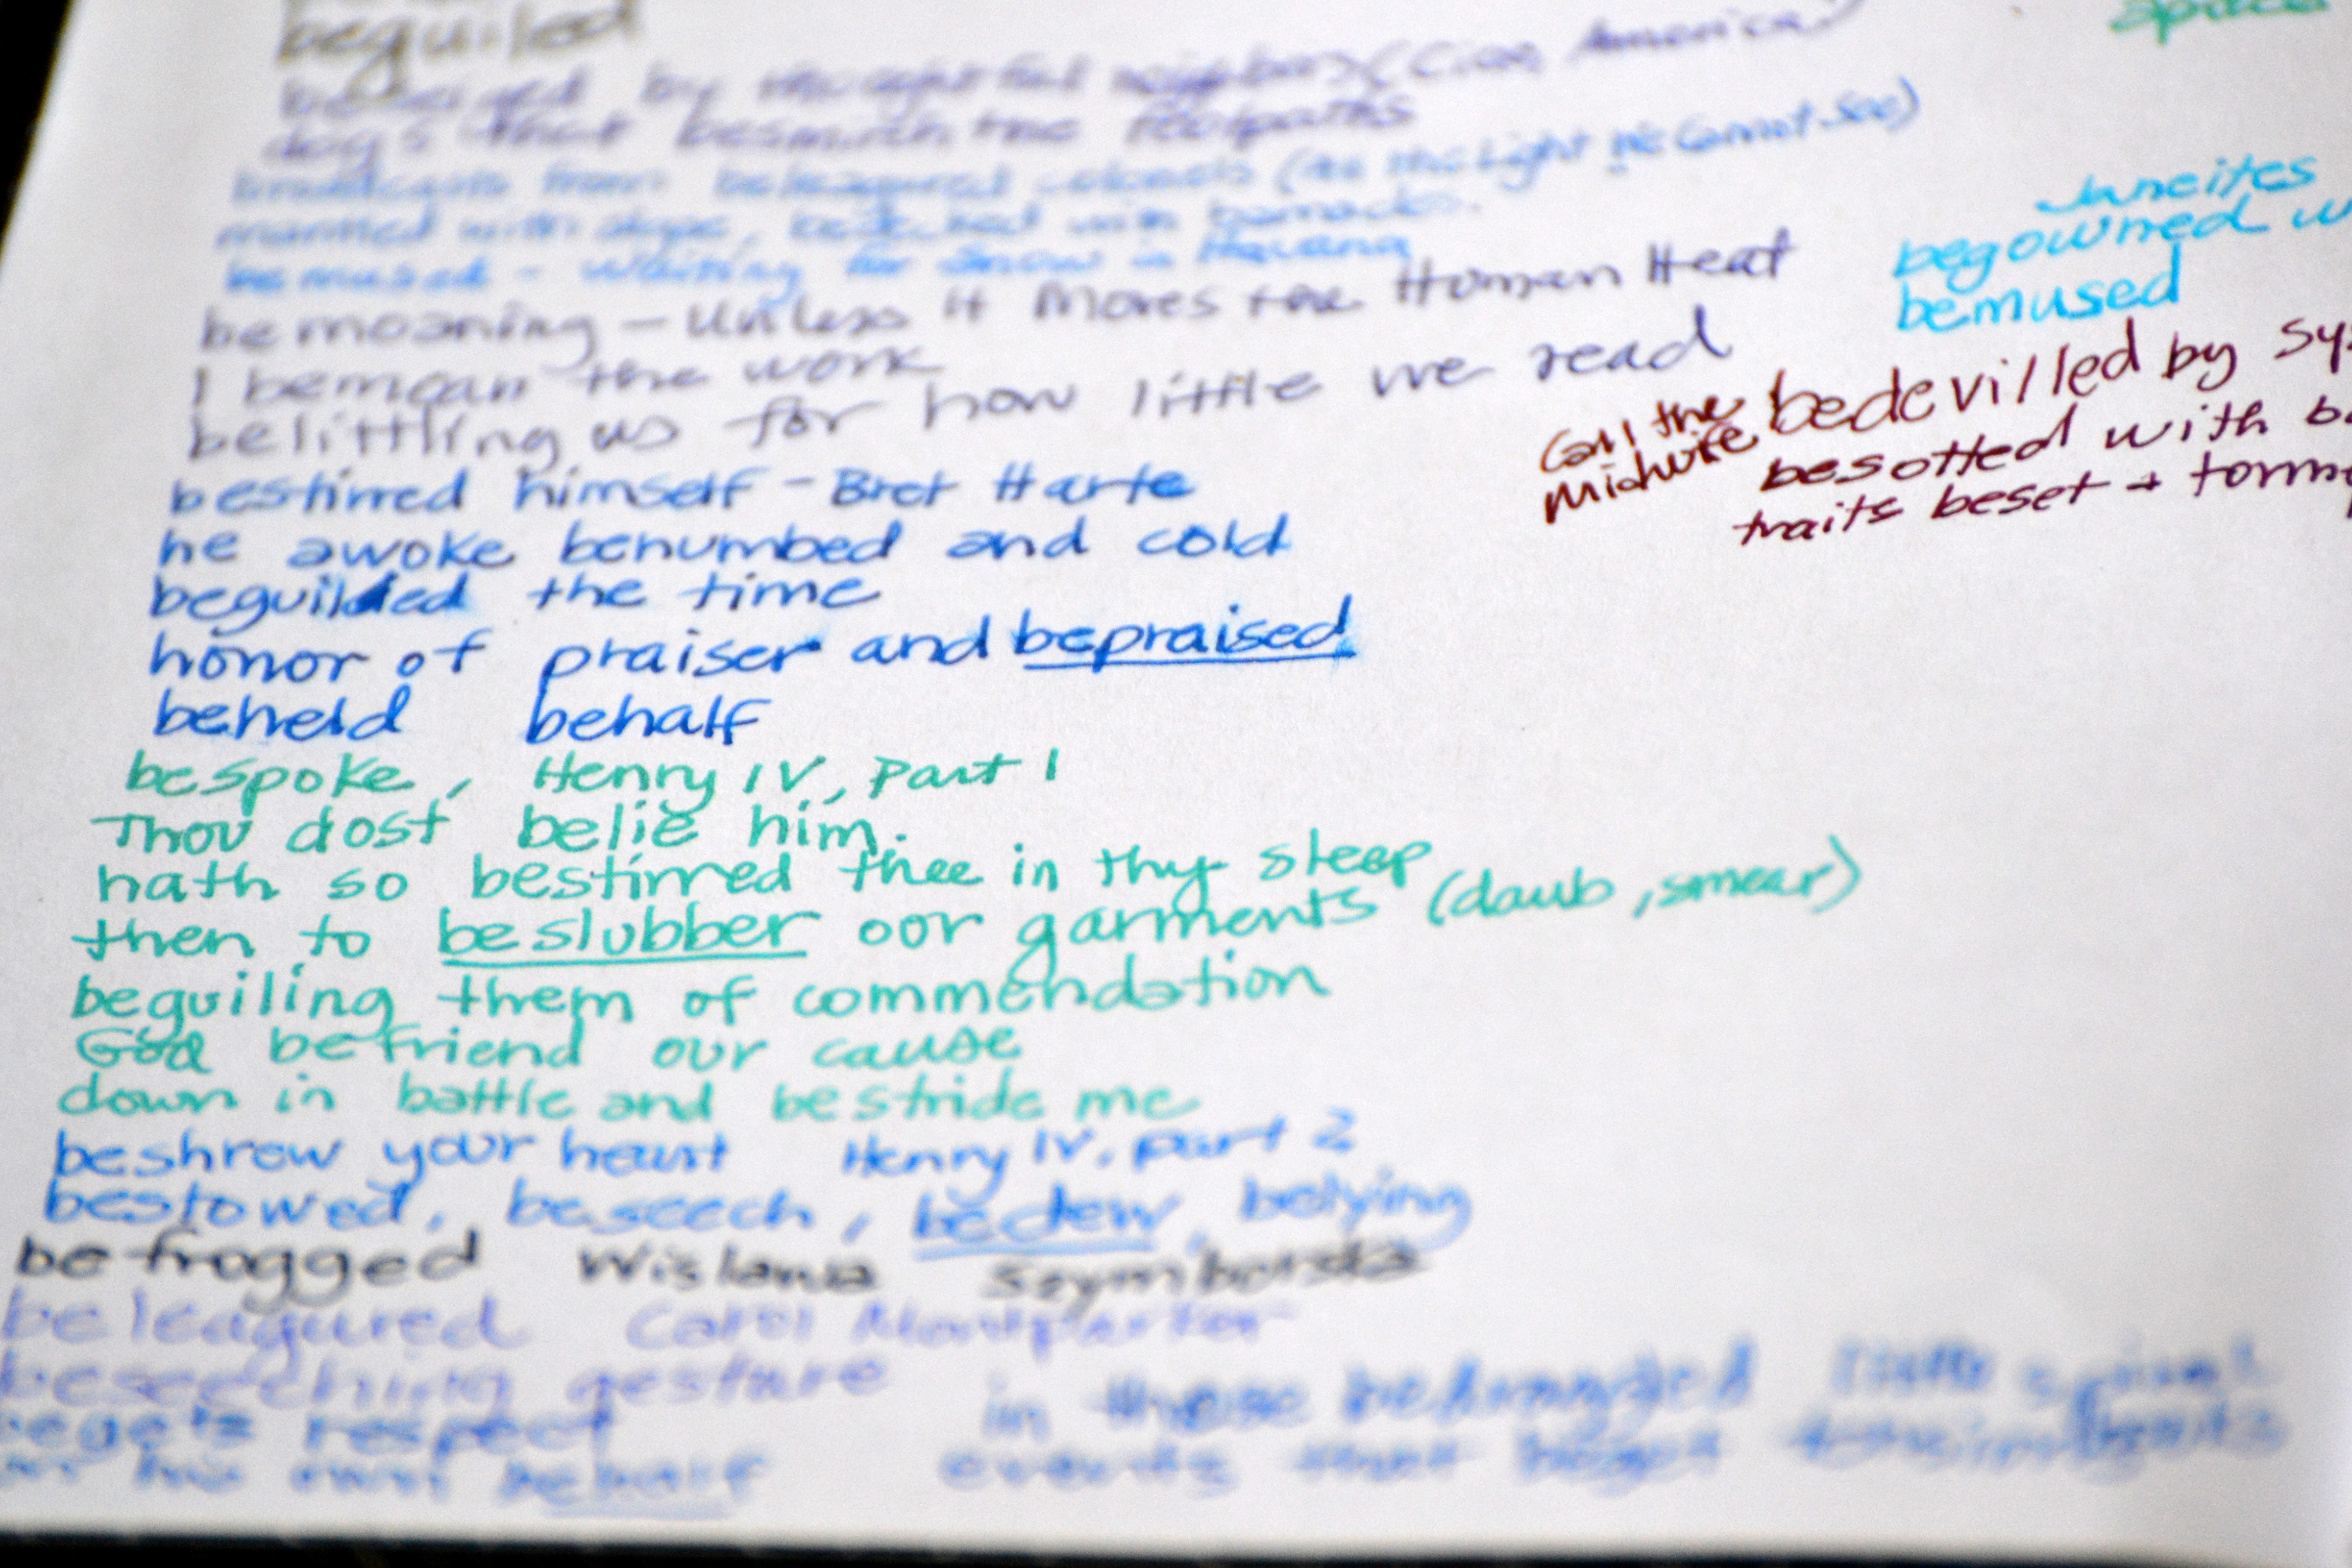 beguiled
by neighbors (Cion, America)
dogs that besmirch the footpaths
from beleaguered colonels (All the Light We Cannot See)
with , bedecked with barnacles.
bemused - Waiting for Snow in Havana
bemoaning - Unless It Moves the Human Heat
I bemoan the work
belittling us for how little we read
bestirred himself - Bret Harte
he awoke benumbed and cold
beguiled the time
honor of praiser and bepraised
beheld behalf
bespoke, Henry IV, Part 1
Thou dost belie him.
hath so bestirred thee in thy sleep
then to beslubber our garments (daub, smear)
beguiling them of commendation
God befriend our cause
down in battle and bestride me
beshrew your heart Henry IV, Part 2
bestowed, beseech, bedew, belying
be-frogged Wislawa Szymborska
beleagured Carol Montparker
beseeching gesture
begets respect
on his own behalf
in these
events that beget
space
Janeites
begowned w
bemused
Call the
midwife
bedevilled by sy
besotted with b
traits beset + torm